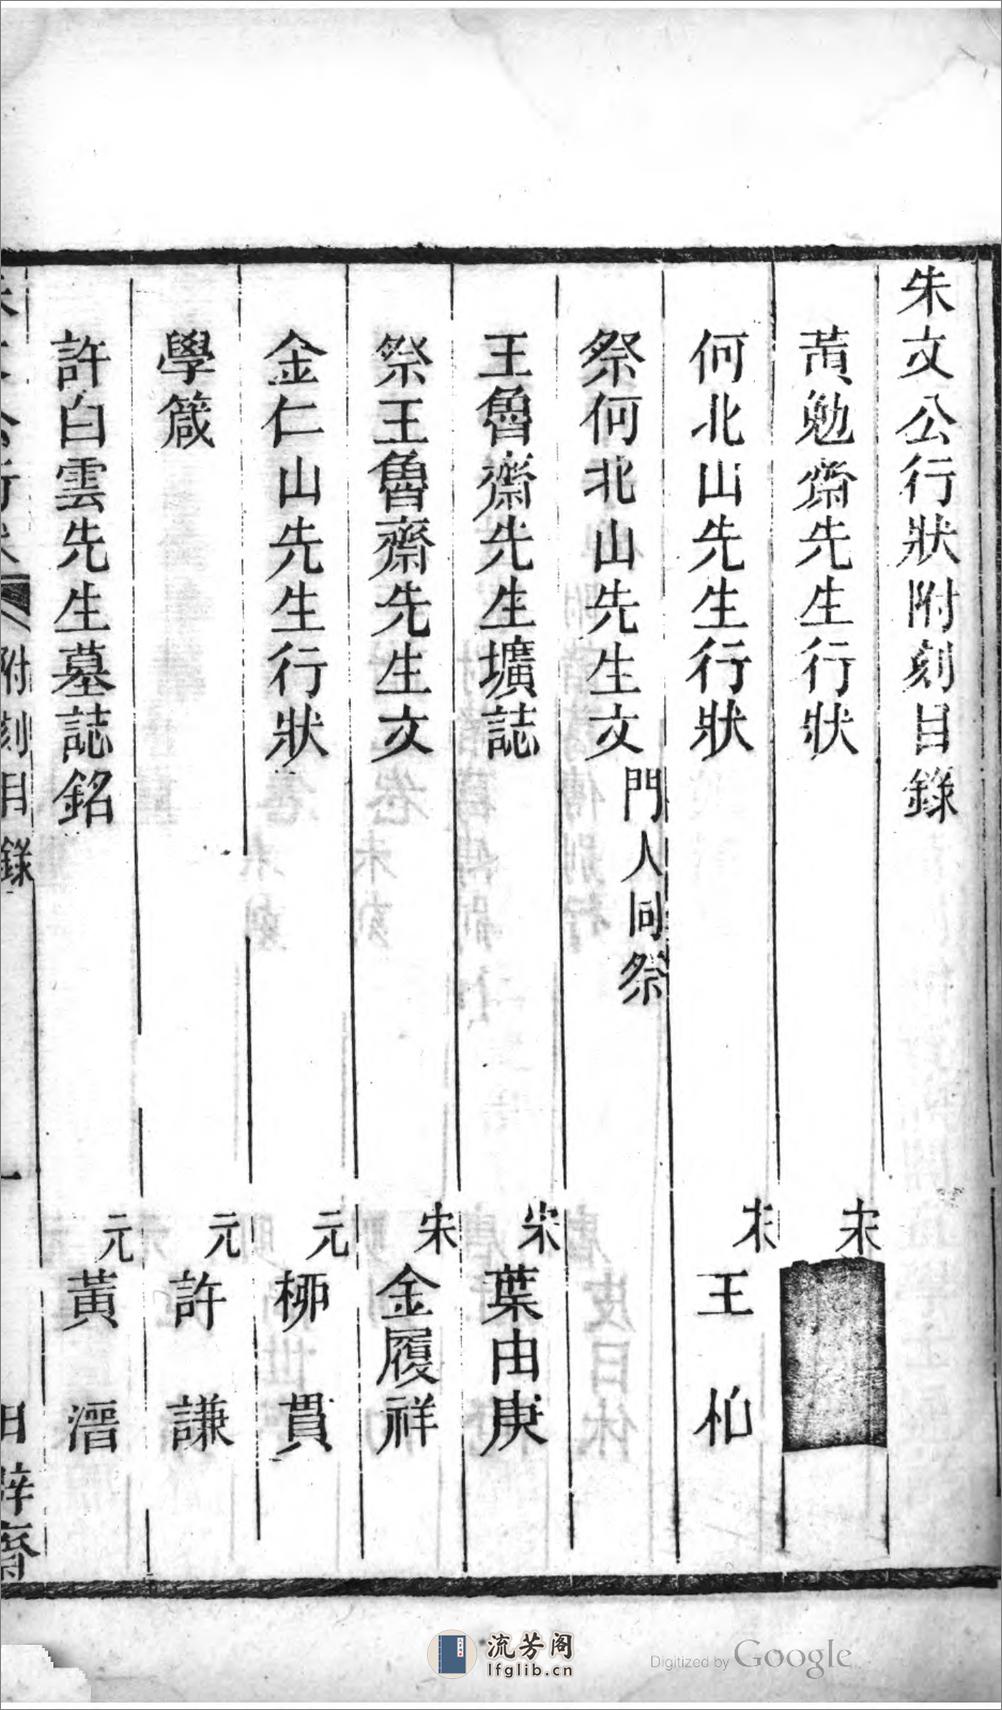 朱文公行狀附刻目錄
黃勉齋先生行狀 宋
何北山先生行狀 宋 王柏
祭何北山先生文 門人同祭
王魯齋先生壙誌 宋 葉由庚
祭王魯齋先生文 宋 金履祥
金仁山先生行狀 元 柳貫
學箴 元 許謙
許白雲先生墓誌銘 元 黃溍
附刻目錄 一
流芳阁
lfglib.cn
Digitized by Google